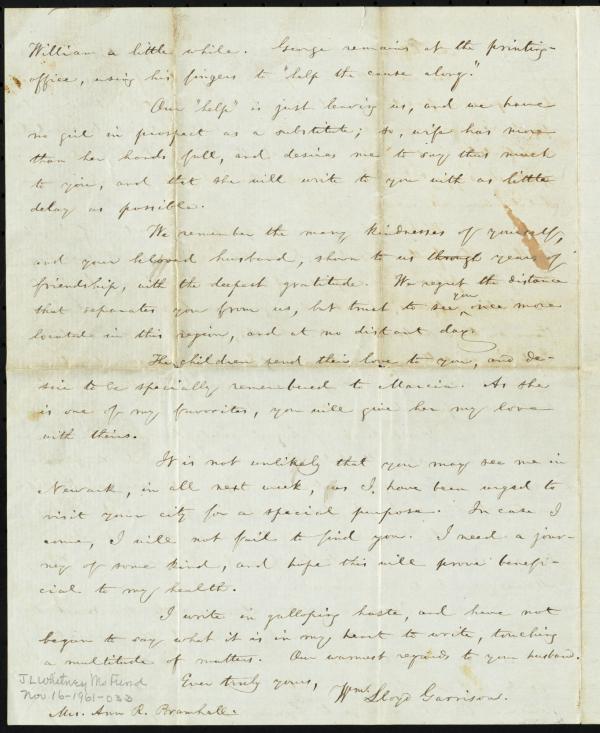 William a little while. George remains at the printing-
office, using his fingers to "help the cause along."
Our "help" is just leaving us, and we have
no girl in prospect as a substitute; so, wife has more
than her hands full, and desires me to say this much
to you, and that she will write to you with as little
delay as possible.
We remember the many kindnesses of yourself,
and your beloved husband, shown to us through years of
friendship, with the deepest gratitude. We regret the distance
that separates you from us, but trust to see you once more
located in this region, and at no distant day.
The children send their love to you, and de-
sire to be specially remembered to Marcia. As she
is one of my favorites, you will give her my love
with theirs.
It is not unlikely that you may see me in
Newark, in all next week, as I have been urged to
visit your city for a special purpose. In case I
come, I will not fail to find you. I need a jour-
ney of some kind, and hope this will prove benefi-
cial to my health.
I write in galloping haste, and have not
begun to say what it is in my heart to write, touching
a multitude of matters. Our warmest regards to your husband.
Ever truly yours,
Wm. Lloyd Garrison.
J L Whitney Mo Fund
Nov 16-1961-033
Mrs. Ann R. Bramhall.